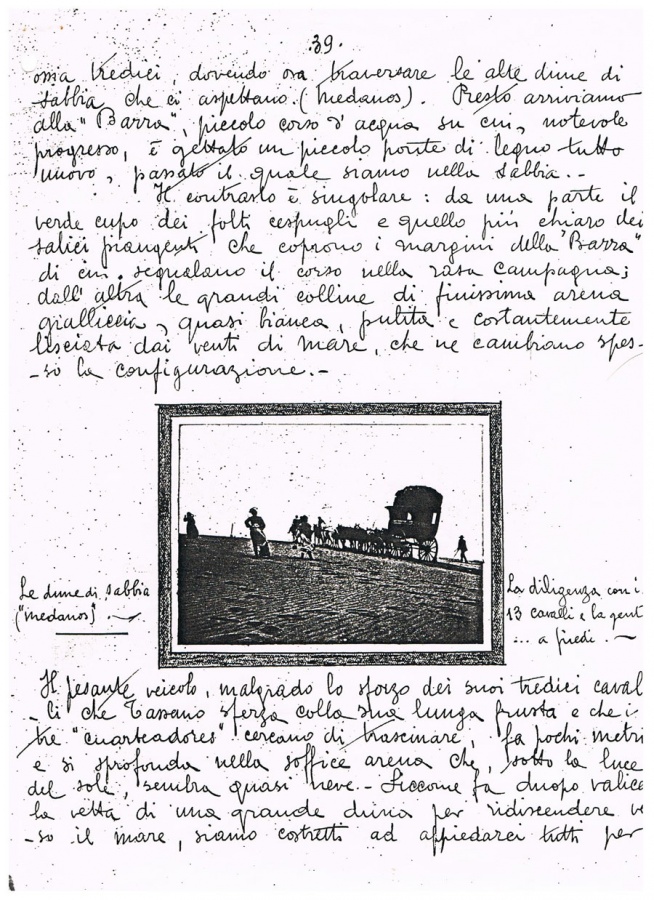 .39.
ossia tredici, dovendo ora traversare le alte dune di
sabbia che ci aspettano (medanos). Presto arriviamo
alla "Barra", piccolo corso d'acqua su cui, notevole
progresso, è gettato un piccolo ponte di legno tutto
nuovo, passato il quale siamo nella sabbia.-
Il contrasto è singolare: da una parte il
verde cupo dei folti cespugli e quello più chiaro dei
salici piangenti che coprono i margini della "Barra"
di cui segnalano il corso nella rasa campagna;
dall'altra le grandi colline di finissima arena
gialliccia, quasi bianca, pulita e costantemente
lisciata dai venti di mare, che ne cambiano spes-
-so la configurazione.-
Le dune di sabbia
("medanos").
La diligenza con i
13 cavalli e la gent
... a piedi.
Il pesante veicolo, malgrado lo sforzo dei suoi tredici caval
-li che Tassano sferza colla sua lunga frusta e che i
tre "cuarteadores" cercano di trascinare, fa pochi metri
e si sprofonda nella soffice arena che, sotto la luce
del sole, sembra quasi neve.- Siccome fa duopo valica
la vetta di una grande duna per ridiscendere ve
-so il mare, siamo costretti ad appiedarci tutti per